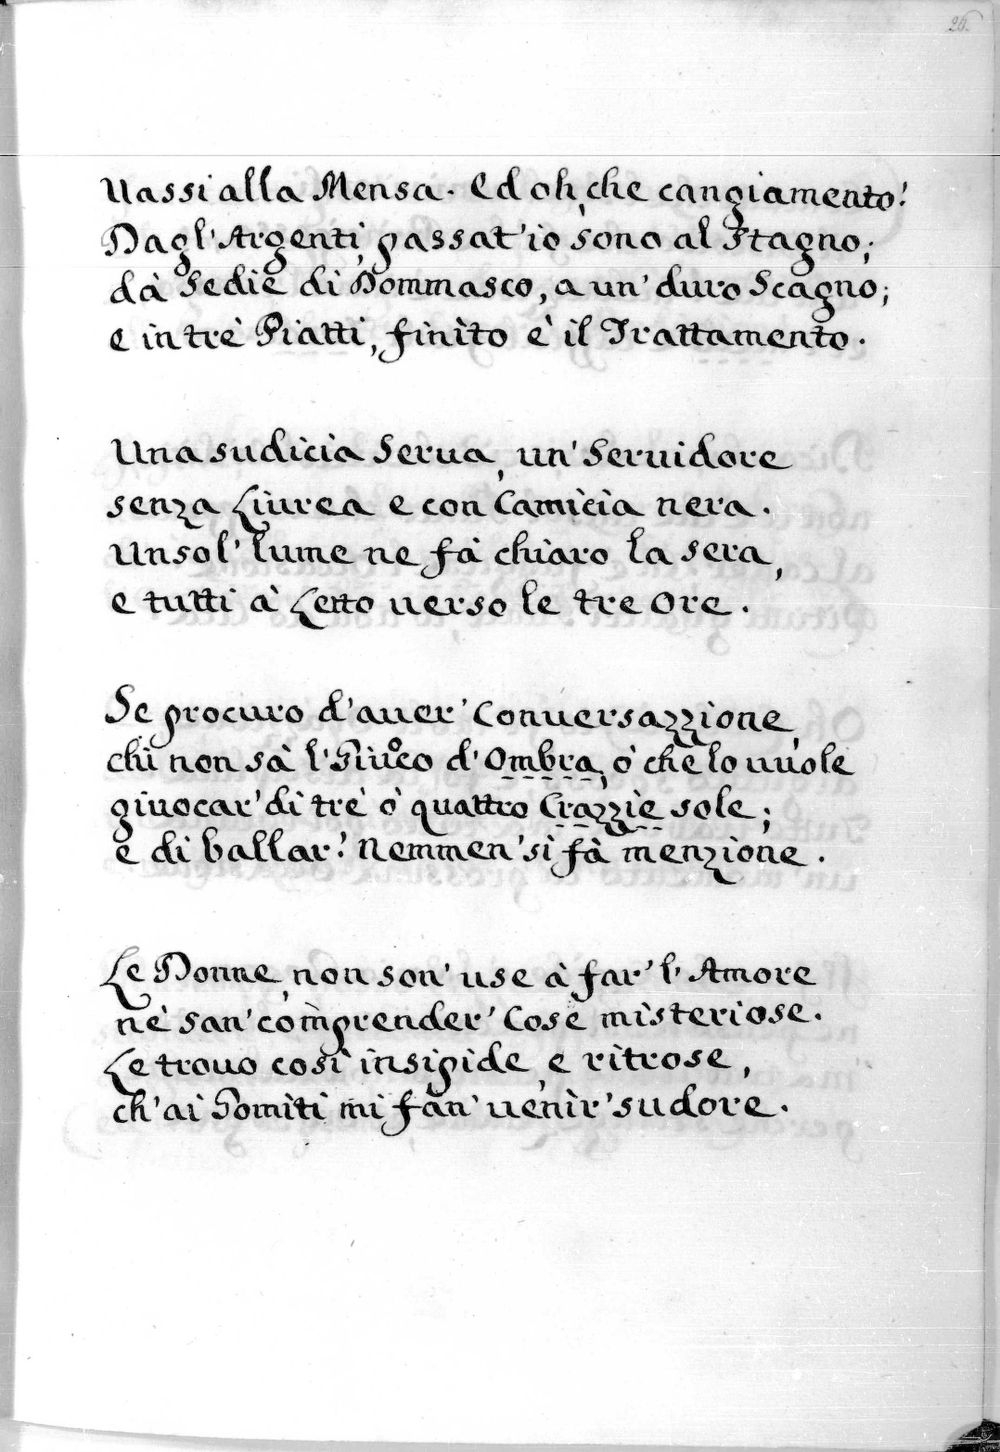 26.
Vassi alla Mensa. Ed oh, che cangiamento!
Dagl' Argenti, passat' io sono al Stagno;
dà Sedie di Dommasco, a un' duro Scagno;
e in trè Piatti, finìto è il Trattamento.
Una sudicia Serua, un' Seruidore
senza Liurea e con Camicia nera.
Un sol' lume ne fà chiaro la sera,
e tutti à Letto uerso le tre Ore.
Se procuro d' auer' Conuersazzione,
chi non sà l' Giuoco d' Ombra, ò che lo uuole
giuocar' di trè ò quattro Crazzie sole;
e di ballar! Nemmen' si fà menzione.
Le Donne, non son' use à far' l' Amore
nè san' comprender' Cose misteriose.
Le trouo così insipide, e ritrose,
ch' ai Gomiti mi fan' uenìr' sudore.